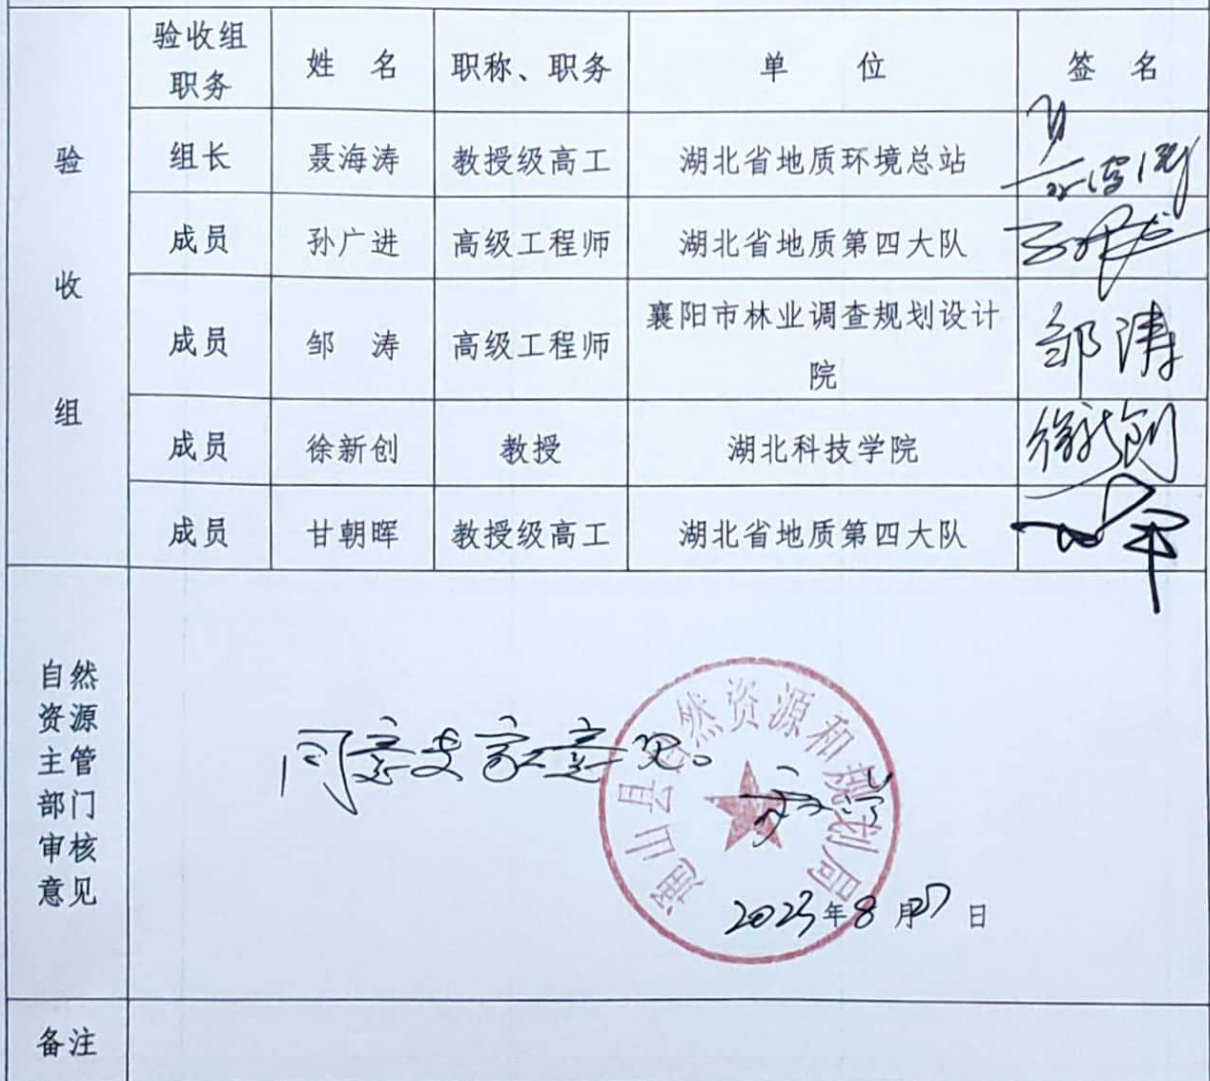 验收组
职务
姓 名
职称、职务
单 位
签 名
验
收
组
组长 聂海涛 教授级高工 湖北省地质环境总站
成员 孙广进 高级工程师 湖北省地质第四大队
成员 邹 涛 高级工程师 襄阳市林业调查规划设计
院
邹涛
成员 徐新创 教授 湖北科技学院 徐新创
成员 甘朝晖 教授级高工 湖北省地质第四大队
自然
资源
主管
部门
审核
意见
同意专家意见。
通山县自然资源和规划局
2023年8月 日
备注